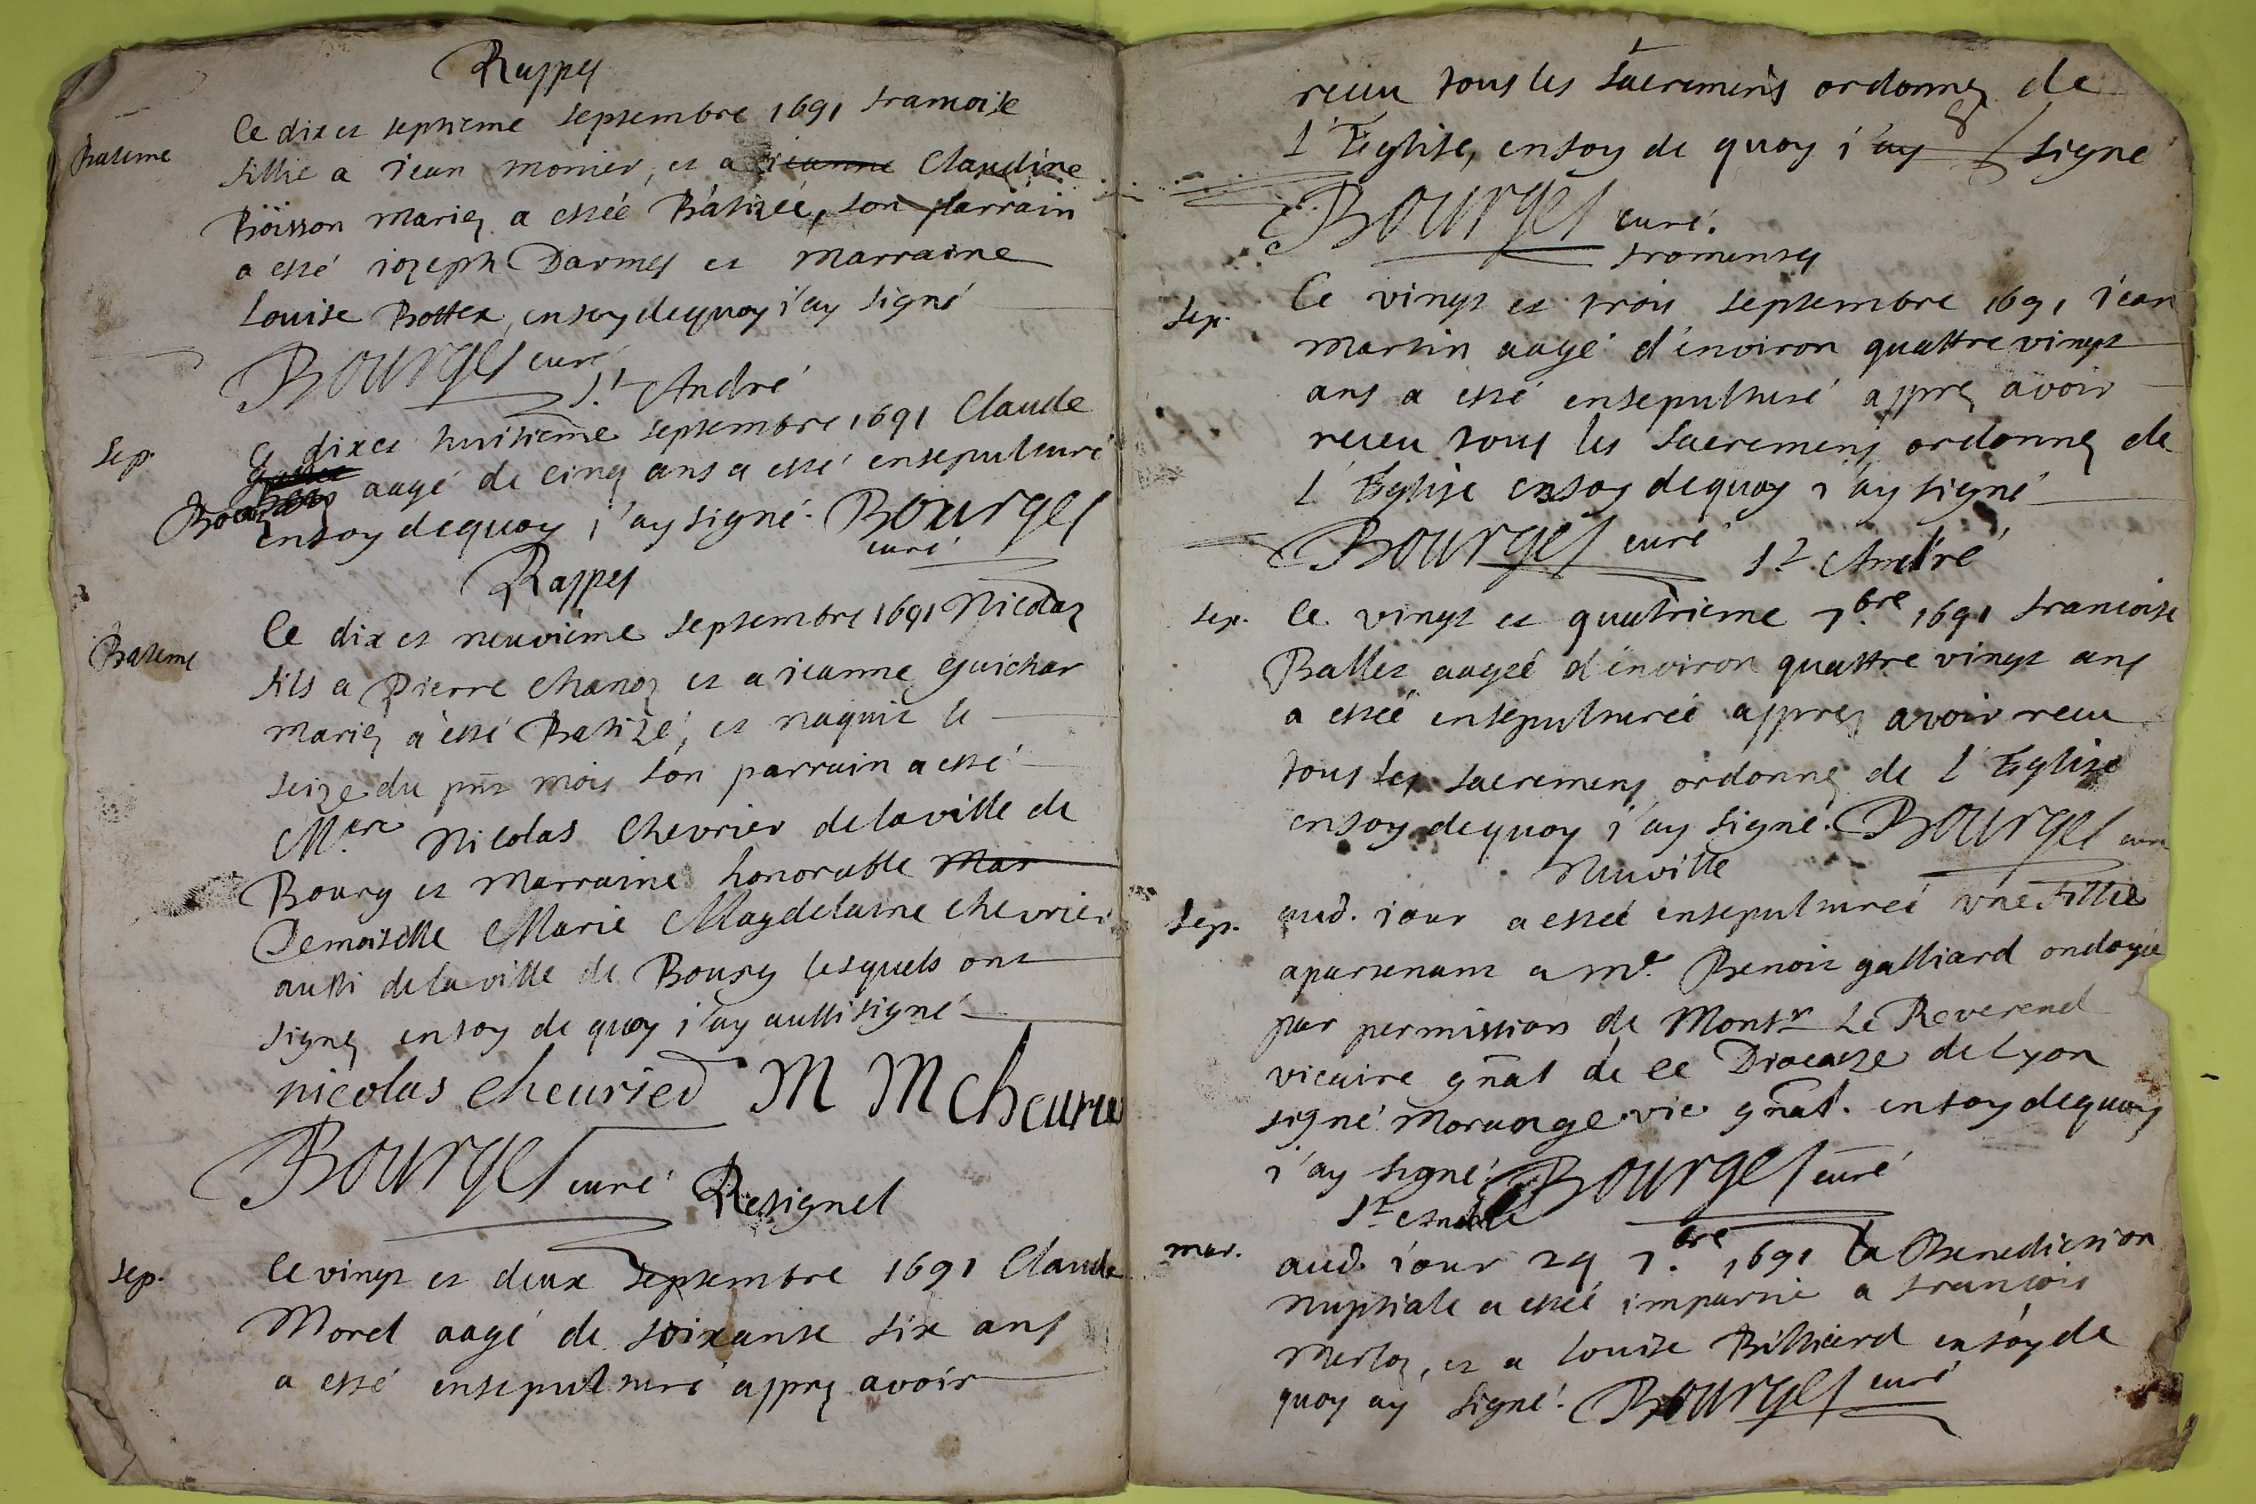 Rappes
Bateme
Ce dix et septieme septembre 1691 francoise
fillie a jean monier, et a jeanne Claudine
Boisson mariez a estéé Batizéé, son parrain
a esté iozeph Darmes et marraine
Louise Bottex, en foy de quoy i'ay signé
Bourges curé
St André
Sep.
Ce dix et huitieme septembre 1691 Claude
aagé de cinq ans a esté ensepulturé
en foy de quoy i'ay signé. Bourges
curé
Rappes
Bateme
Ce dix et neuvieme septembre 1691 Nicolas
fils a Pierre chanoz et a jeanne guichar
mariez a esté Batizé, et naquit le
seize du pnt mois son parrain a esté
Nicolas Chevrier de la ville de
Bourg et marraine honorable mar
Demoiselle Marie Magdelaine chevrier
aussi de la ville de Bourg lesquels ont
signez en foy de quoy i'ay aussi signé
nicolas cheurier M M Cheurie
Bourges curé
Resignel
Sep.
Ce vingt et deux septembre 1691 Claude
Morel aagé de soixante six ans
a esté ensepulturé apprez avoir
receu tous les sacremens ordonnez de
l'Eglise, en foy de quoy i'ay signé
Bourges curé.
fromentes
Sep.
Ce vingt et trois septembre 1691 jean
martin aagé d'environ quattre vingt
ans a esté ensepulturé apprez avoir
receu tous les sacremens ordonnez de
l'Eglise en foy de quoy i'ay signé
Bourges curé
St André
Sep.
Ce vingt et quatrieme 7.bre 1691 francoise
Ballet aageé d'environ quattre vingt ans
a esteé ensepultureé apprez avoir receu
tous les sacremens ordonnez de l'Eglise
en foy de quoy i'ay signé. Bourges curé
Neuville
Sep.
aud. iour a esteé ensepultureé une fillie
apartenant a me. Benoit galliard ondoyée
par permission de Monsr Le Reverend
vicaire gnal de ce Dioceze de Lyon
signé morange vic gnal. en foy de quoy
i'ay signé Bourges curé
St André
mar.
aud. iour 24 7.bre 1691 la Benediction
nuptiale a esteé impartie a francois
merloz, et a Louise Billiard en foy de
quoy ay signé. Bourges curé